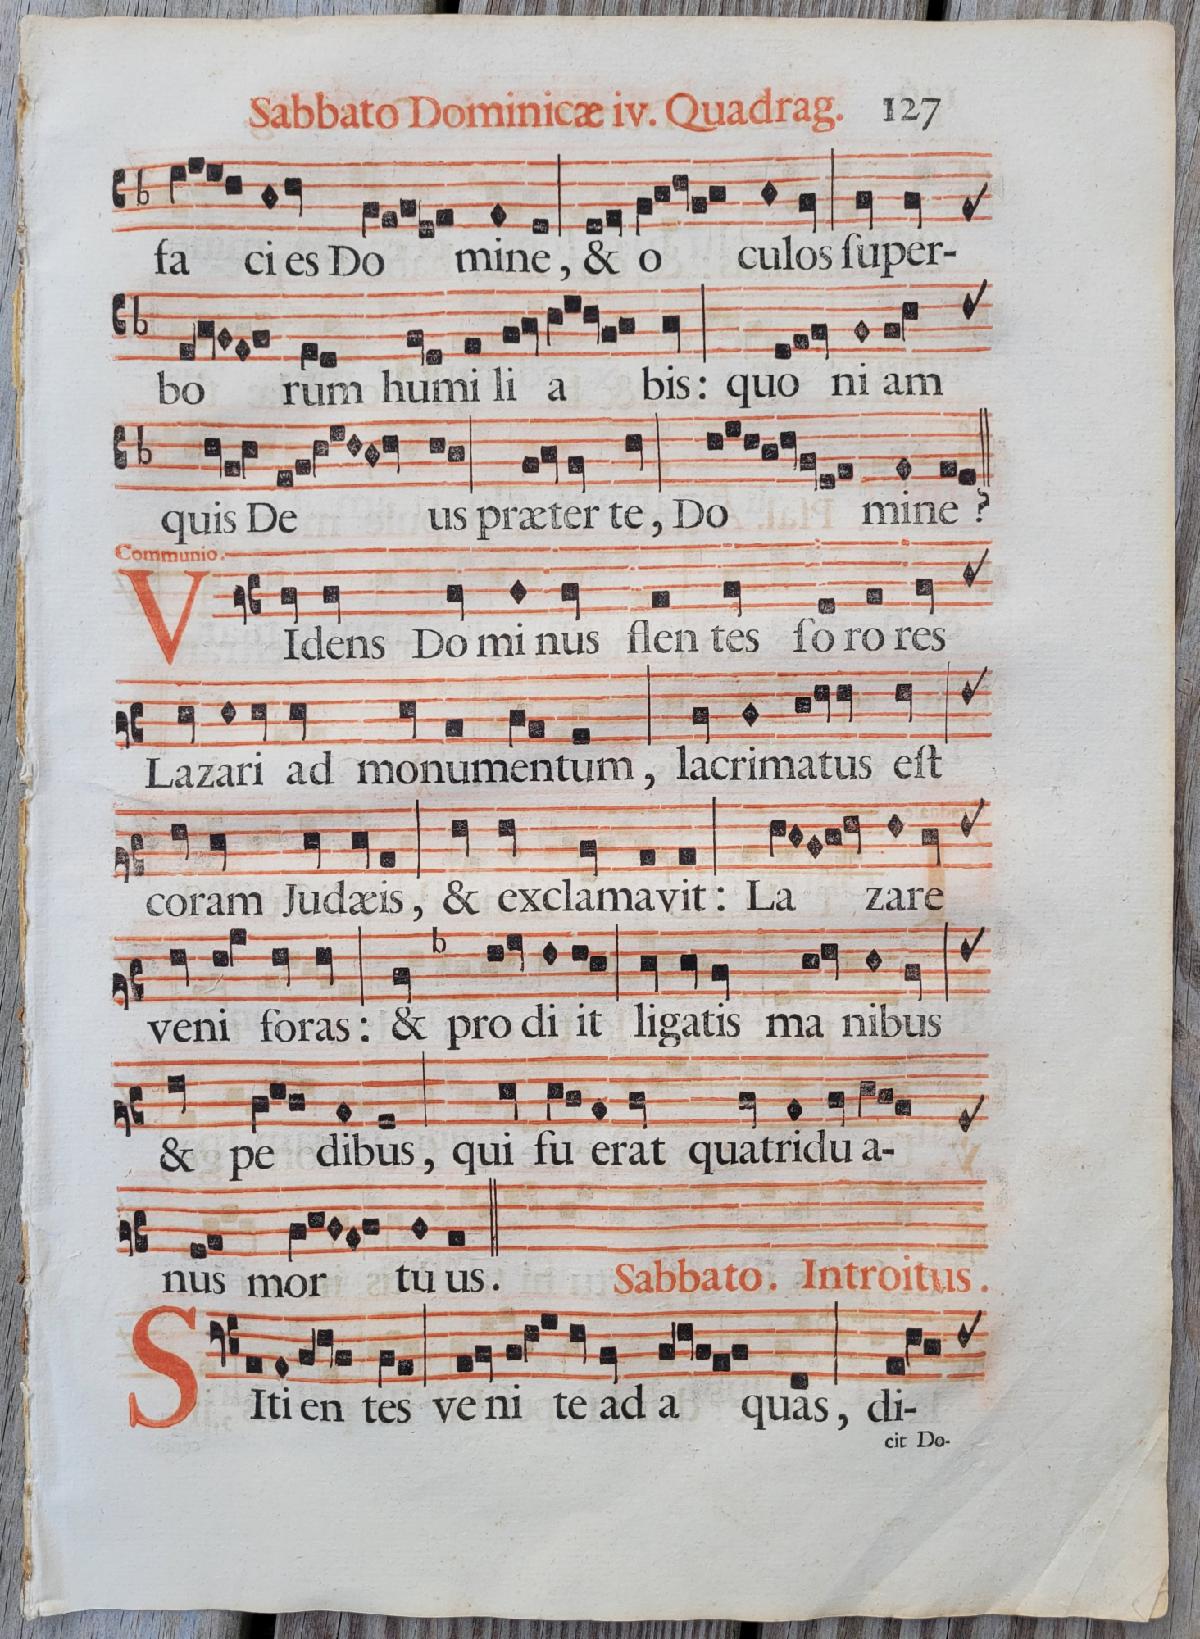 Sabbato Dominicæ iv. Quadrag. 127
fa ci es Do mine, & o culos ſuper-
bo rum humi li a bis: quo ni am
quis De us præter te, Do mine?
Communio.
VIdens Do mi nus flen tes ſo ro res
Lazari ad monumentum, lacrimatus eſt
coram Judæis, & exclamavit: La zare
veni foras: & pro di it ligatis ma nibus
& pe dibus, qui fu erat quatridu a-
nus mor tu us. Sabbato. Introitus.
SIti en tes ve ni te ad a quas, di-
cit Do-